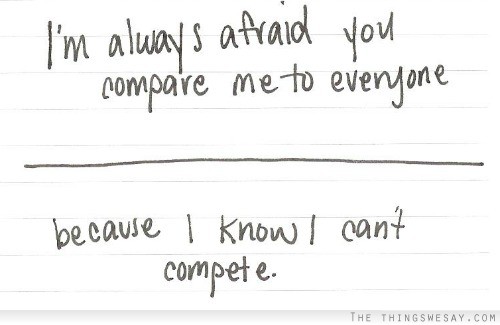 I'm always afraid you
compare me to everyone
because I know I can't
compete.
THE THINGSWESAY.COM